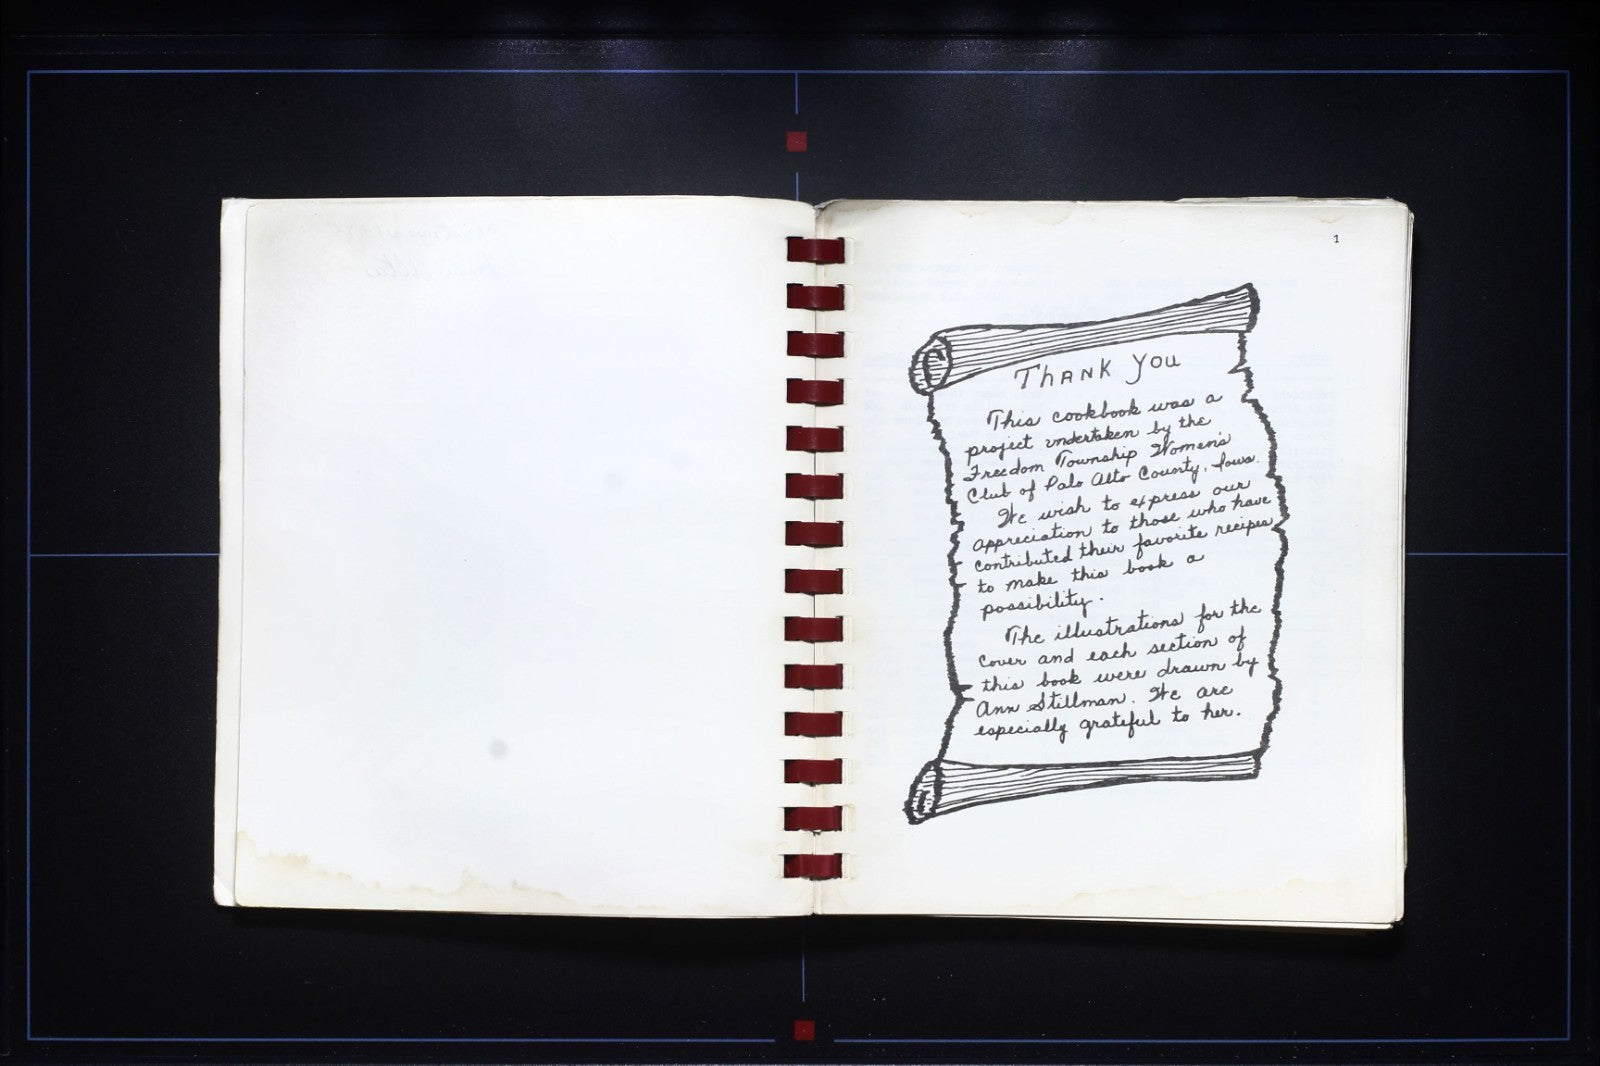 1
Thank You
This cookbook was a
project undertaken by the
Freedom Township Women's
Club of Palo Alto County, Iowa.
We wish to express our
appreciation to those who have
contributed their favorite recipes
to make this book a
possibility.
The illustrations for the
cover and each section of
this book were drawn by
Ann Stillman. We are
especially grateful to her.